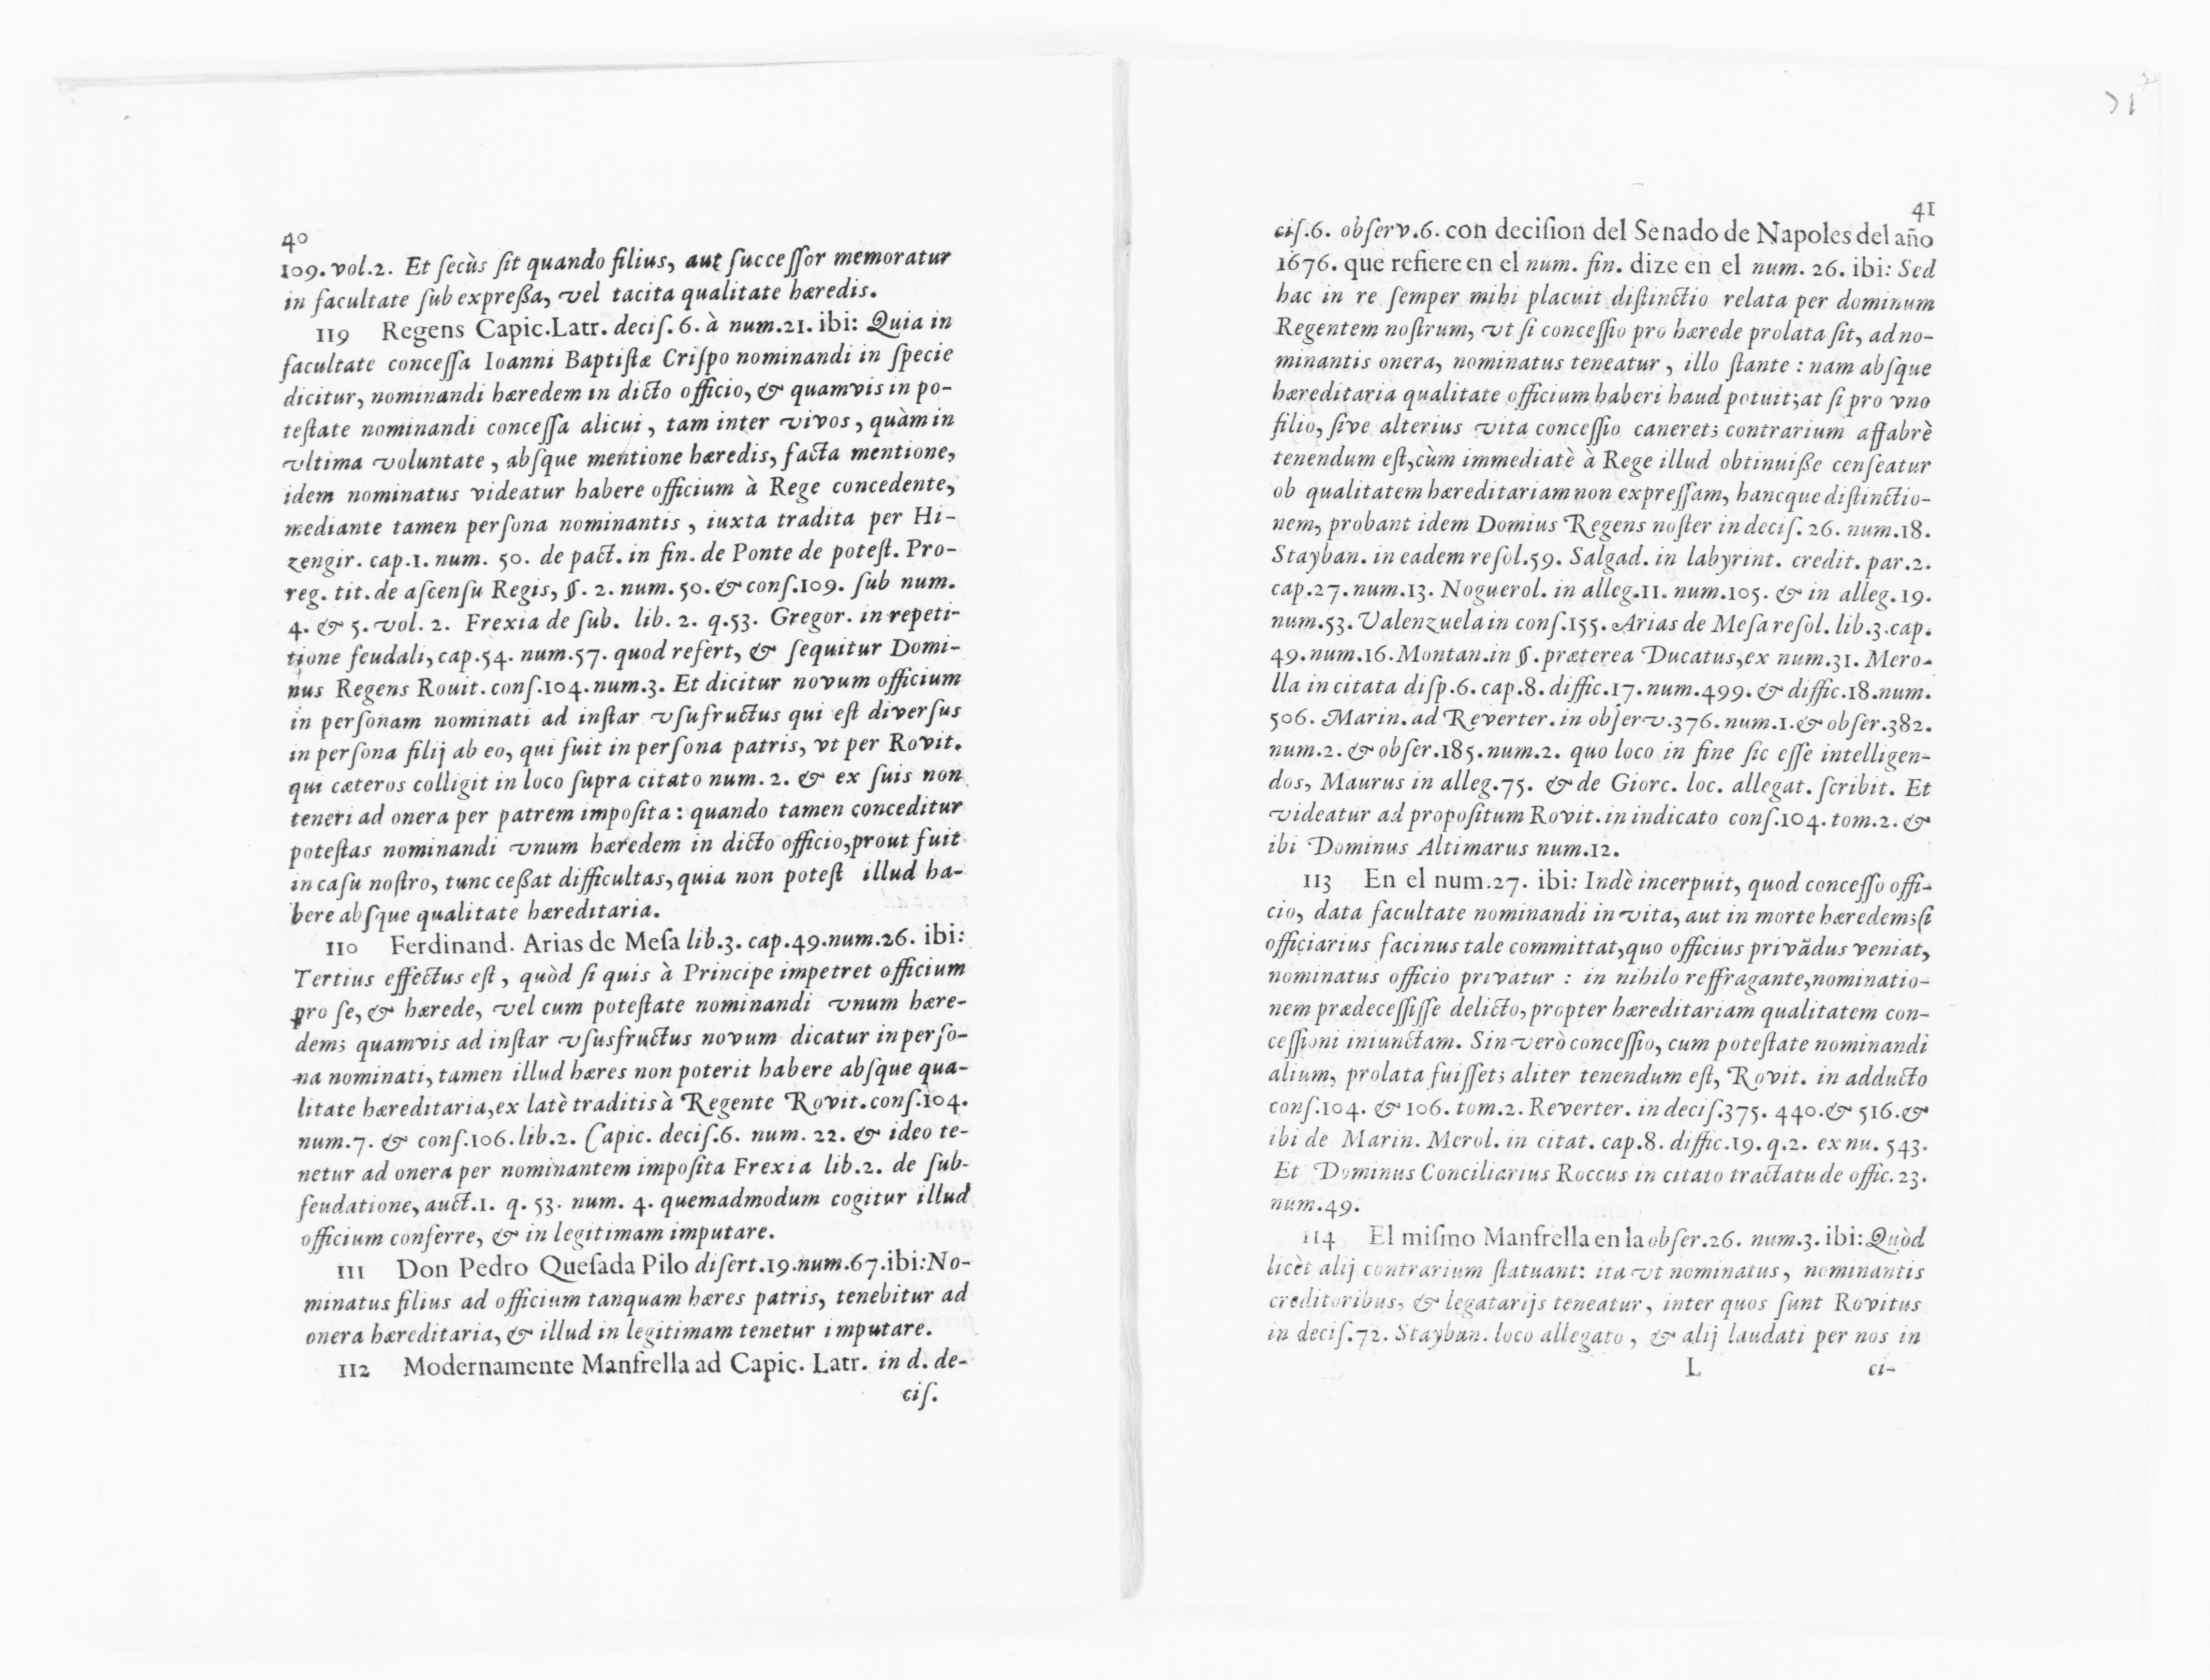 40
109. vol.2. Et ſecùs ſit quando filius, aut ſucceſſor memoratur
in facultate ſub expreßa, vel tacita qualitate hæredis.
119 Regens Capic.Latr. deciſ. 6. à num.21. ibi: Quia in
facultate conceſſa Ioanni Baptiſtæ Criſpo nominandi in ſpecie
dicitur, nominandi hæredem in dicto officio, & quamvis in po-
teſtate nominandi conceſſa alicui, tam inter vivos, quàm in
vltima voluntate, abſque mentione hæredis, facta mentione,
idem nominatus videatur habere officium à Rege concedente,
mediante tamen perſona nominantis, iuxta tradita per Hi-
zengir. cap.1. num. 50. de pact. in fin. de Ponte de poteſt. Pro-
reg. tit. de aſcenſu Regis, §. 2. num. 50. & conſ.109. ſub num.
4. & 5. vol. 2. Frexia de ſub. lib. 2. q.53. Gregor. in repeti-
tione feudali, cap.54. num.57. quod refert, & ſequitur Domi-
nus Regens Rouit. conſ.104. num.3. Et dicitur novum officium
in perſonam nominati ad inſtar vſufructus qui eſt diverſus
in perſona filij ab eo, qui fuit in perſona patris, vt per Rovit.
qui cæteros colligit in loco ſupra citato num. 2. & ex ſuis non
teneri ad onera per patrem impoſita: quando tamen conceditur
poteſtas nominandi vnum hæredem in dicto officio, prout fuit
in caſu noſtro, tunc ceßat difficultas, quia non poteſt illud ha-
bere abſque qualitate hæreditaria.
110 Ferdinand. Arias de Meſa lib.3. cap.49.num.26. ibi:
Tertius effectus eſt, quòd ſi quis à Principe impetret officium
pro ſe, & hærede, vel cum poteſtate nominandi vnum hære-
dem; quamvis ad inſtar vſusfructus novum dicatur in perſo-
na nominati, tamen illud hæres non poterit habere abſque qua-
litate hæreditaria, ex latè traditis à Regente Rovit. conſ.104.
num.7. & conſ.106. lib.2. Capic. deciſ.6. num. 22. & ideo te-
netur ad onera per nominantem impoſita Frexia lib.2. de ſub-
feudatione, auct.1. q. 53. num. 4. quemadmodum cogitur illud
officium conferre, & in legitimam imputare.
111 Don Pedro Queſada Pilo diſert.19.num.67.ibi: No-
minatus filius ad officium tanquam hæres patris, tenebitur ad
onera hæreditaria, & illud in legitimam tenetur imputare.
112 Modernamente Manfrella ad Capic. Latr. in d. de-
ciſ.
41
ciſ.6. obſerv.6. con deciſion del Senado de Napoles del año
1676. que refiere en el num. fin. dize en el num. 26. ibi: Sed
hac in re ſemper mihi placuit diſtinctio relata per dominum
Regentem noſtrum, vt ſi conceſſio pro hærede prolata ſit, ad no-
minantis onera, nominatus teneatur, illo ſtante: nam abſque
hæreditaria qualitate officium haberi haud potuit; at ſi pro vno
filio, ſive alterius vita conceſſio caneret; contrarium affabrè
tenendum eſt, cùm immediatè à Rege illud obtinuiße cenſeatur
ob qualitatem hæreditariam non expreſſam, hancque diſtinctio-
nem, probant idem Domius Regens noſter in deciſ. 26. num.18.
Stayban. in eadem reſol.59. Salgad. in labyrint. credit. par.2.
cap.27. num.13. Noguerol. in alleg.11. num.105. & in alleg. 19.
num.53. Valenzuela in conſ.155. Arias de Meſa reſol. lib.3. cap.
49. num.16. Montan. in §. præterea Ducatus, ex num.31. Mero-
lla in citata diſp.6. cap.8. diffic.17. num.499. & diffic.18. num.
506. Marin. ad Reverter. in obſerv.376. num.1. & obſer.382.
num.2. & obſer.185. num.2. quo loco in fine ſic eſſe intelligen-
dos, Maurus in alleg.75. & de Giorc. loc. allegat. ſcribit. Et
videatur ad propoſitum Rovit. in indicato conſ.104. tom.2. &
ibi Dominus Altimarus num.12.
113 En el num.27. ibi: Indè incerpuit, quod conceſſo offi-
cio, data facultate nominandi in vita, aut in morte hæredem; ſi
officiarius facinus tale committat, quo officius privãdus veniat,
nominatus officio privatur: in nihilo reffragante, nominatio-
nem prædeceſſiſſe delicto, propter hæreditariam qualitatem con-
ceſſioni iniunctam. Sin verò conceſſio, cum poteſtate nominandi
alium, prolata fuiſſet; aliter tenendum eſt, Rovit. in adducto
conſ.104. & 106. tom.2. Reverter. in deciſ.375. 440. & 516. &
ibi de Marin. Merol. in citat. cap.8. diffic.19. q.2. ex nu. 543.
Et Dominus Conciliarius Roccus in citato tractatu de offic. 23.
num.49.
114 El miſmo Manfrella en la obſer.26. num.3. ibi: Quòd
licèt alij contrarium ſtatuant: ita vt nominatus, nominantis
creditoribus, & legatarijs teneatur, inter quos ſunt Rovitus
in deciſ.72. Stayban. loco allegato, & alij laudati per nos in
L ci-